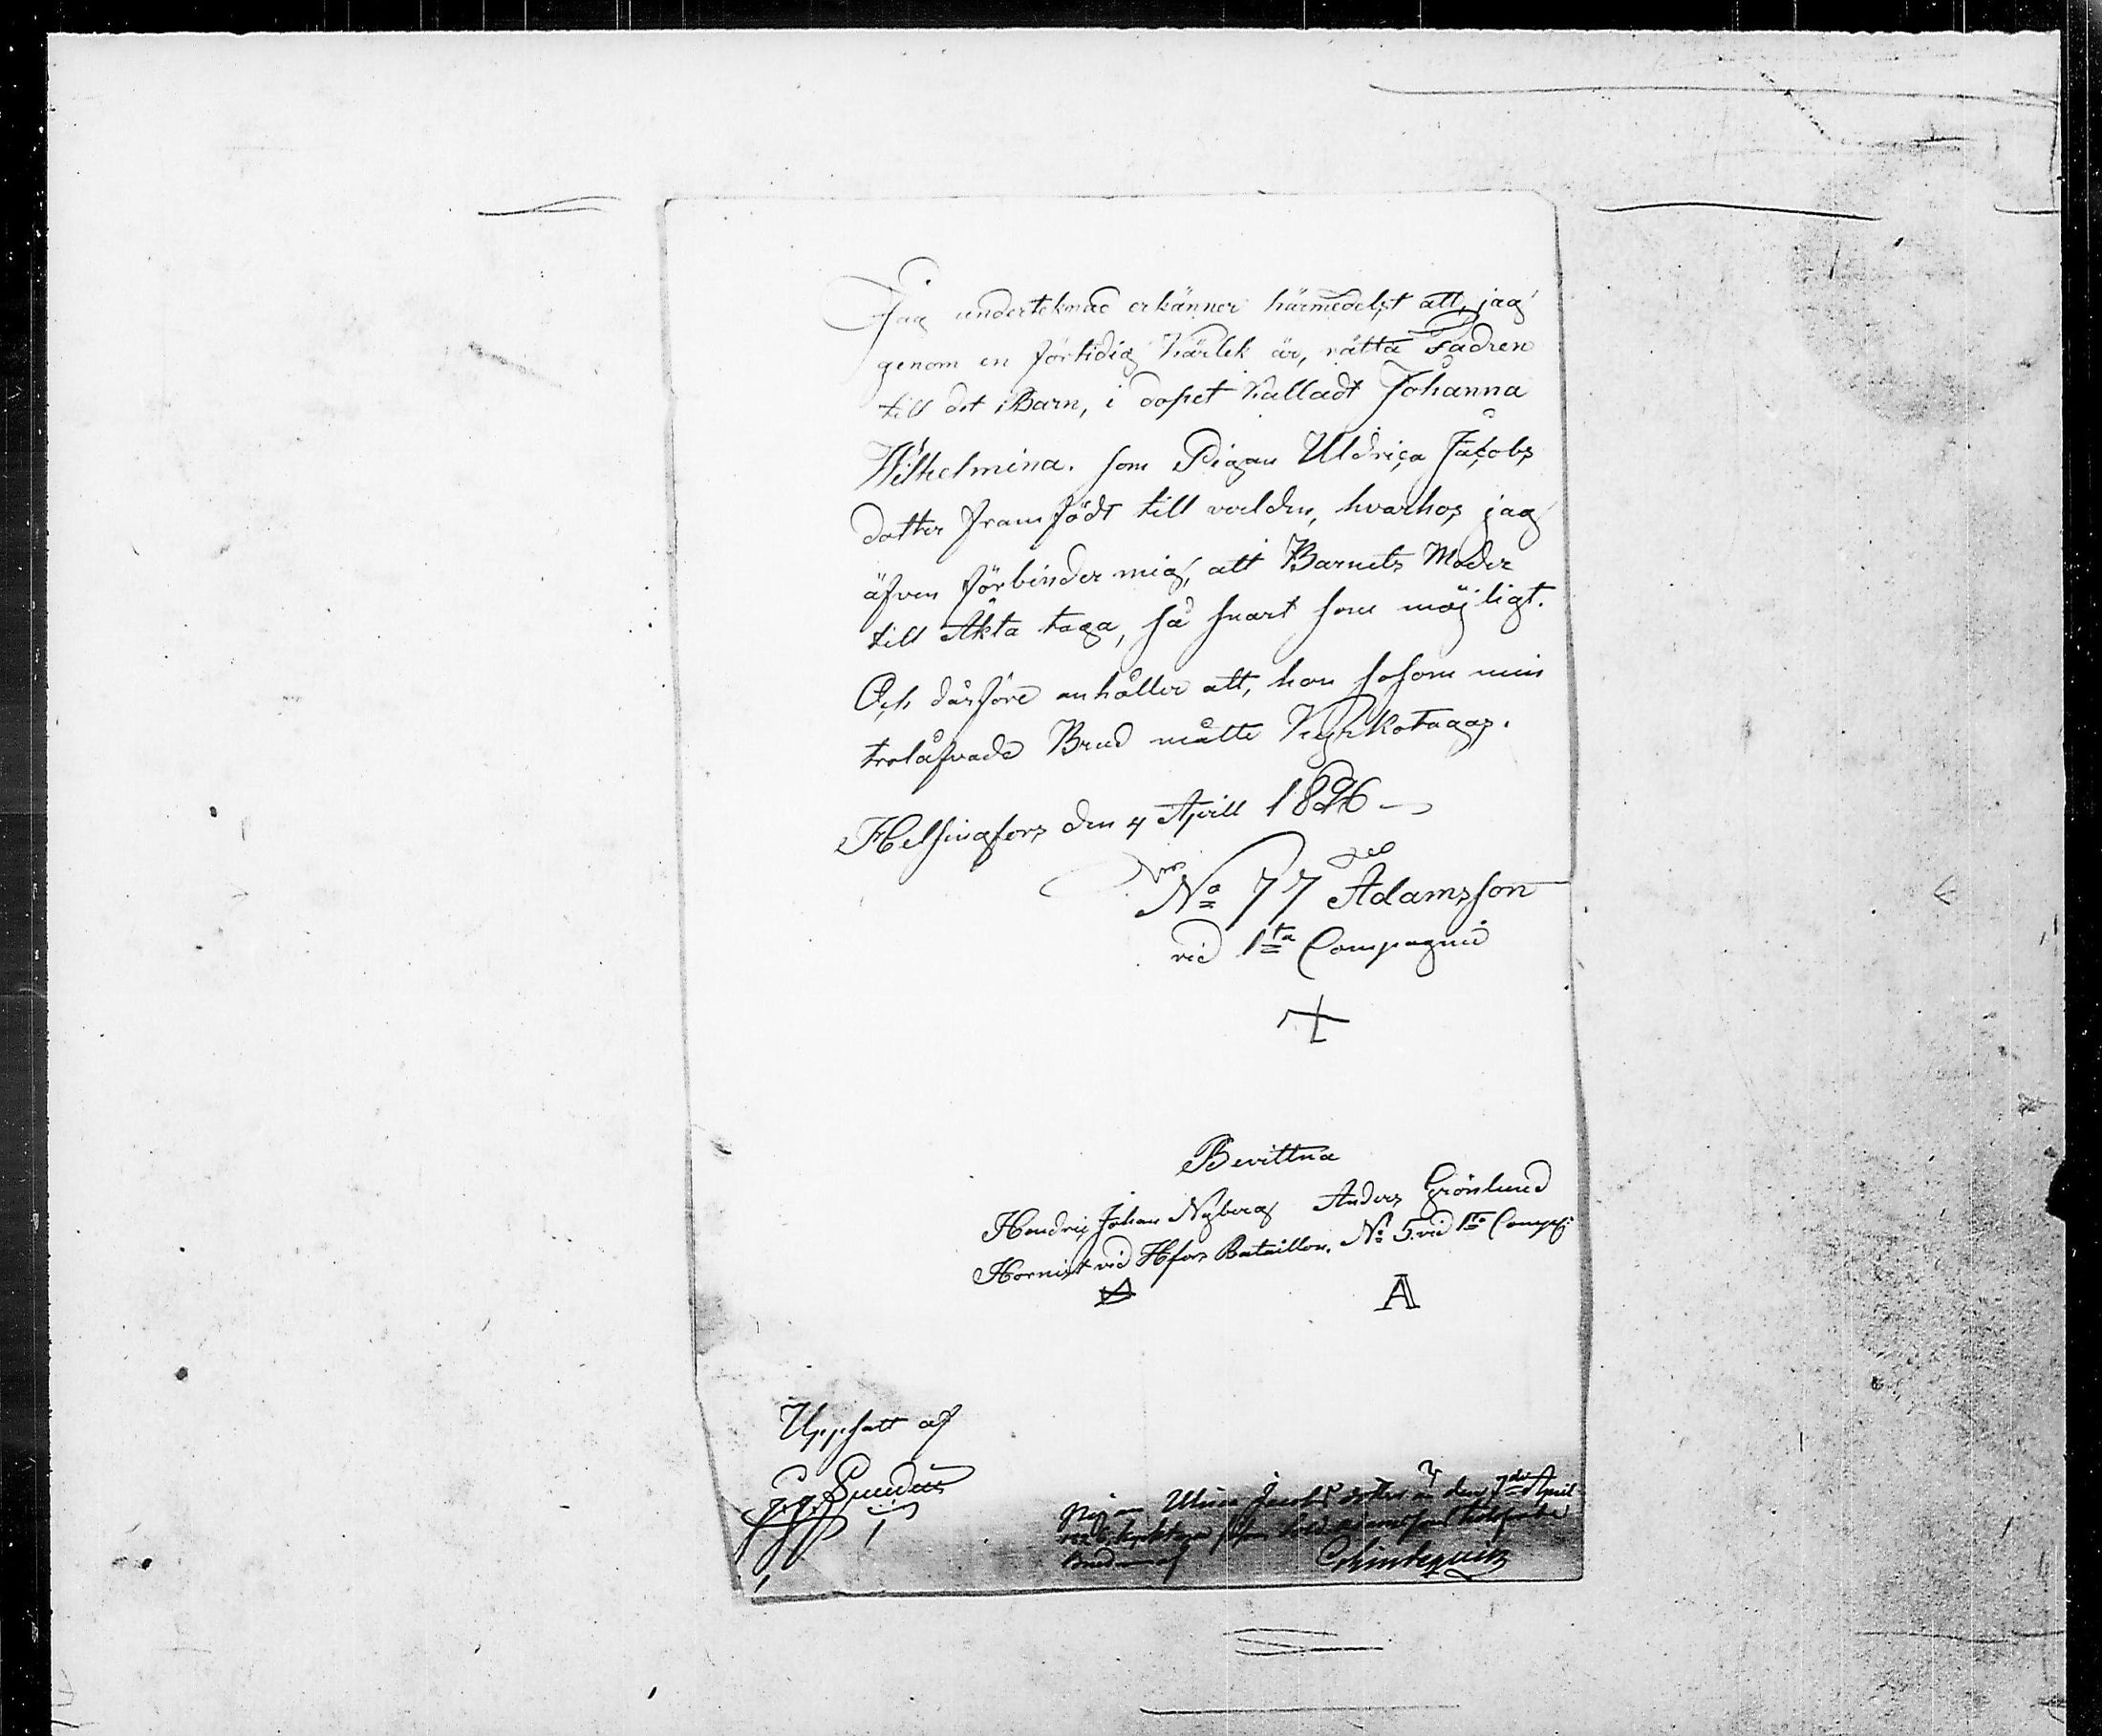 Jag underteknad erkänner härmedelst att, jag
genom en förtidig Kärlek är, rätta Fadren
till det Barn, i dopet Kalladt Johanna
Wilhelmina. som Pigan Uldrica Jacobs
dotter framfödt till verlden, hvarhos jag
äfven förbinder mig, att Barnets Moder
till Äkta taga, så snart som möjligt.
Och därföre anhåller att, hon såsom min
trolåfvade Brud måtte Kyrkotagas.
Helsingfors den 4 Aprill 1826
No 77 Adamsson
vid 1ta Compagnie
Bevittna
Hendric Johan Nyberg Anders Grönlund
Hornist vid Hfors Bataillon. No 5. vid 1ta Comp:
A
Uppsatt af
Pigan Ulrica Jacobsdotter är den 7de April